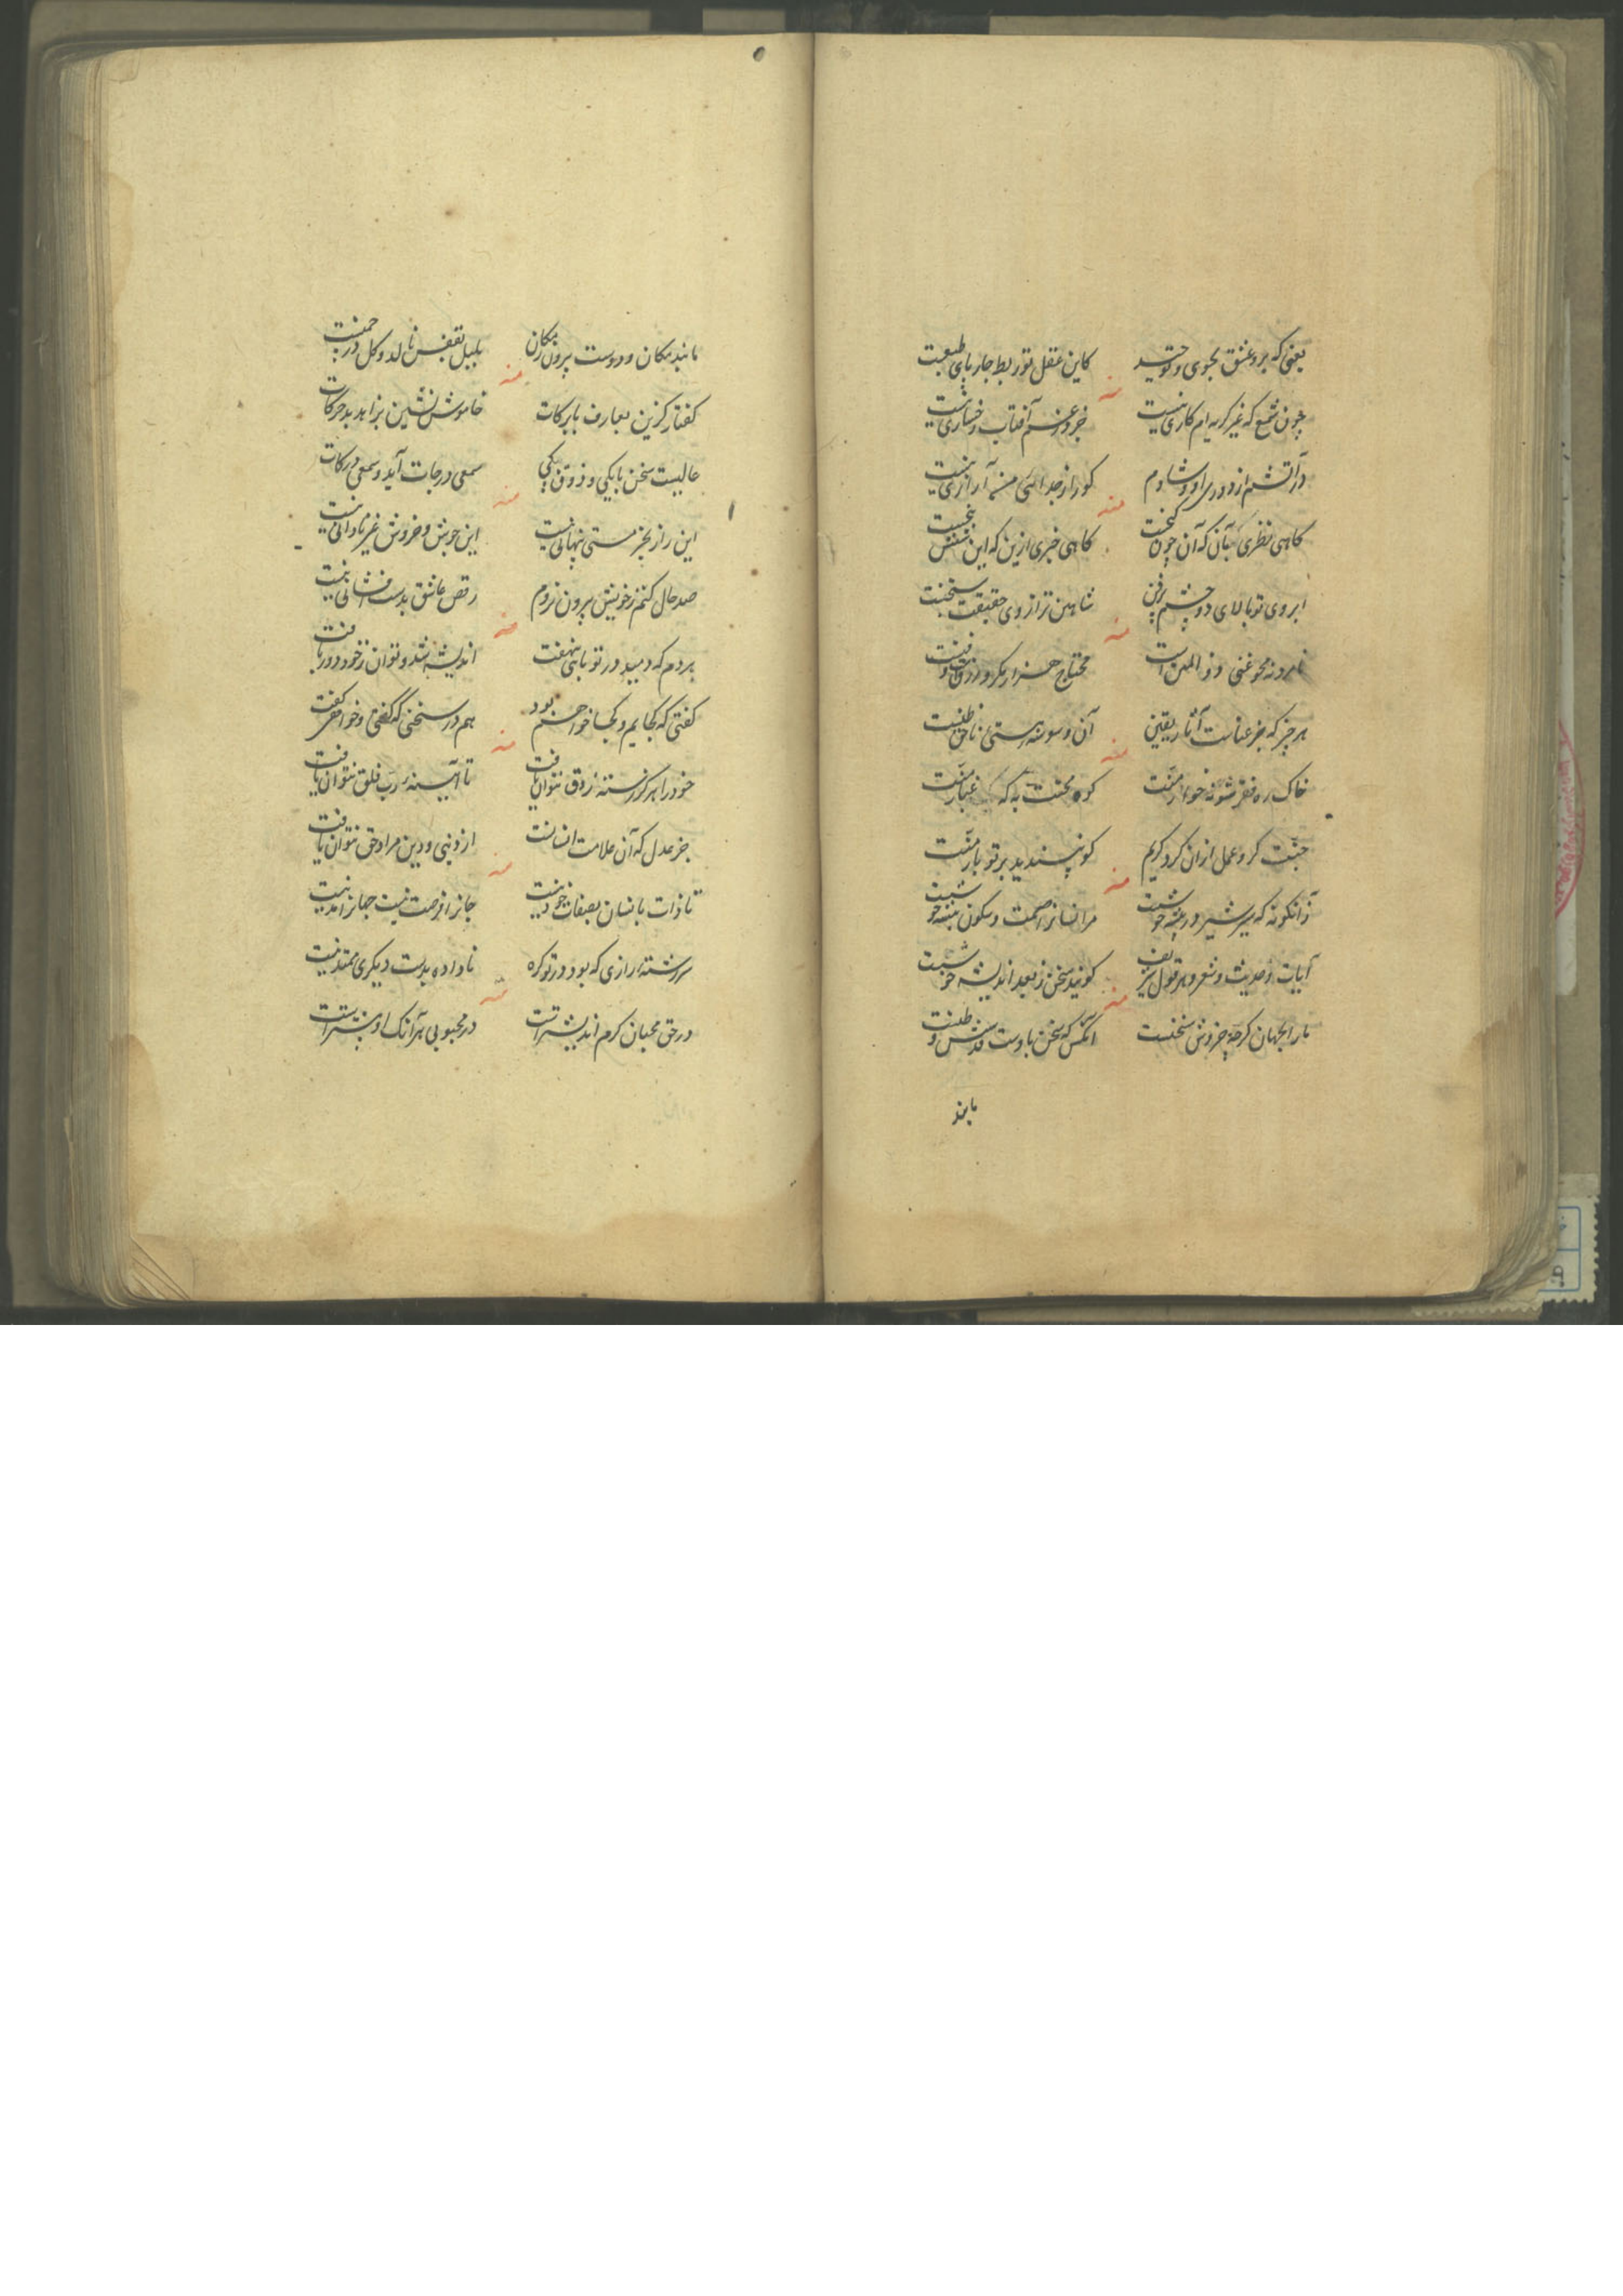 یعنی که برو عشق بجوی و توحید کاین عقل تو ربط چار پای طبعیت
منه
چون شمع که غیر گریه ام کاری نیست جز وعزم آفتاب رخساری نیست
در آتشم از دوری او و شادم کو را ز جدائی منه آزاری نیست
منه
گاهی نظری بآن که آن چون گنجت گاهی خبری ازین که این شش پنجست
ابروی تو بالای دو چشم پرفن شاهین ترازوی حقیقت سنجت
منه
نامرد نه محو غنی ذوالمنن است محتاج هزار مکر و زرق و فنست
هر چیز که جز عناست آثار یقین آن وسوسه هستی ناحق ظنست
منه
خاک ره فقر شو نه خوار منت کوه محنت به که غبار منت
جنت کرد و عمل ازان کرد کریم کو نپسندید بر تو بار منت
منه
زانگونه که سر شیر در بیشه خوشست مر انسانرا صمت و سکون پیشه خوشست
آیات و حدیث و شعر و هر قول شریف گویند سخن ز بعد اندیشه خوشست
منه
ما را بجهان گرچه خروش سخنست آنکس که سخن باوست
مانند
مانند مکان و دوست بیرون ز مکان بلبل بقفس نالد و گل در چمنست
منه
گفتار گزین بعارف با برکات خاموش نشین بزاهد بد حرکات
عالیست سخن با یکی و ذوق یکی سمعی درجات آید و سمعی درکات
منه
این راز بجز مستی پنهانی نیست این جوش و خروش غیر نادانی نیست
صد حال کنم ز خویش بیرون نروم رقص عاشق بدست افشانی نیست
منه
هر دم که دمید در تو بانی نهفت اندیشه شد و توان ز خود دور یافت
گفتی که کجایم و کجا خواهم بود هم در سخنی که گفتی و خواهی گفت
منه
خود را هرگز رسته ز دق نتوان یافت تا آیینه رب فلق نتوان یافت
جز عدل که آن علامت انسانست از دنیی و دین مراد حق نتوان یافت
منه
تا ذات بانسان بصفات خود نیست جانرا فرصت نیست جهانرا مد نیست
سررشته رازی که بود در تو گره ناداده بدست دیگری ممتد نیست
منه
در حق محبان کرم اندیشتر است در محبوبی هر آنک او بیشتر است